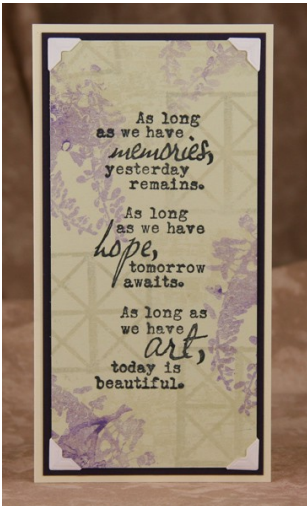 As long
as we have
memories,
yesterday
remains.
As long
as we have
hope,
tomorrow
awaits.
As long as
we have
art,
today is
beautiful.